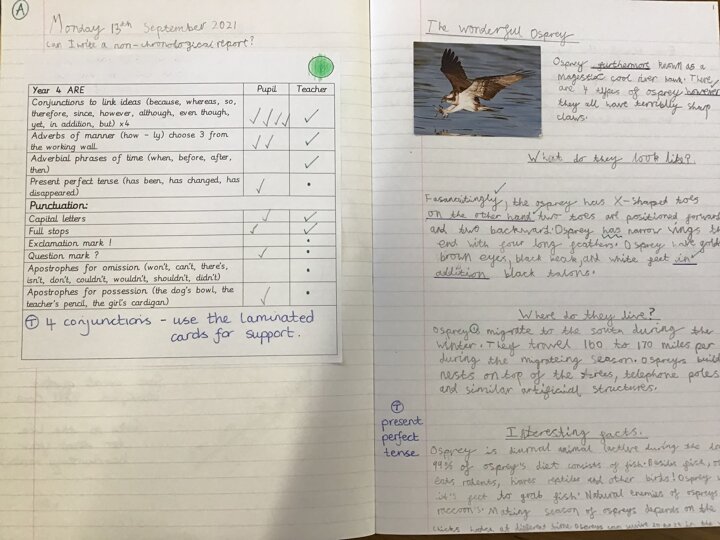 A
Monday 13th September 2021
can I write a non-chronological report?
Year 4 ARE
Pupil
Teacher
Conjunctions to link ideas (because, whereas, so,
therefore, since, however, although, even though,
yet, in addition, but) x4
Adverbs of manner (how - ly) choose 3 from
the working wall.
Adverbial phrases of time (when, before, after,
then)
Present perfect tense (has been, has changed, has
disappeared)
Punctuation:
Capital letters
Full stops
Exclamation mark !
Question mark ?
Apostrophes for omission (won't, can't, there's,
isn't, don't, couldn't, wouldn't, shouldn't, didn't)
Apostrophes for possession (the dog's bowl, the
teacher's pencil, the girl's cardigan)
T 4 conjunctions - use the laminated
cards for support.
The wonderful Osprey
Osprey furthermore known as a
majestic cool river hawk. There
are 4 types of osprey however
they all have terribly sharp
claws.
What do they look like?
Fasanatingly, the osprey has X-shaped toes
on the other hand two toes are positioned forward
and two backward. Osprey has narrow wings
end with four long feathers. Osprey have gold
brown eyes, black beak and white feet in
addition black talons.
Where do they live?
Osprey migrate to the south during the
winter. They travel 160 to 170 miles per
during the migrateing season. Ospreys build
nests on top of the trees, telephone poles
and similar artificial structures.
T
present
perfect
tense
Interesting facts.
Osprey is diurnal animal (active during the
99% of osprey's diet consists of fish. Beside fish,
eats rodents, hares reptiles and other birds! Osprey
feet to grab fish. Natural enemies of ospreys
raccoon's. Mating season of ospreys depends on the
at different time